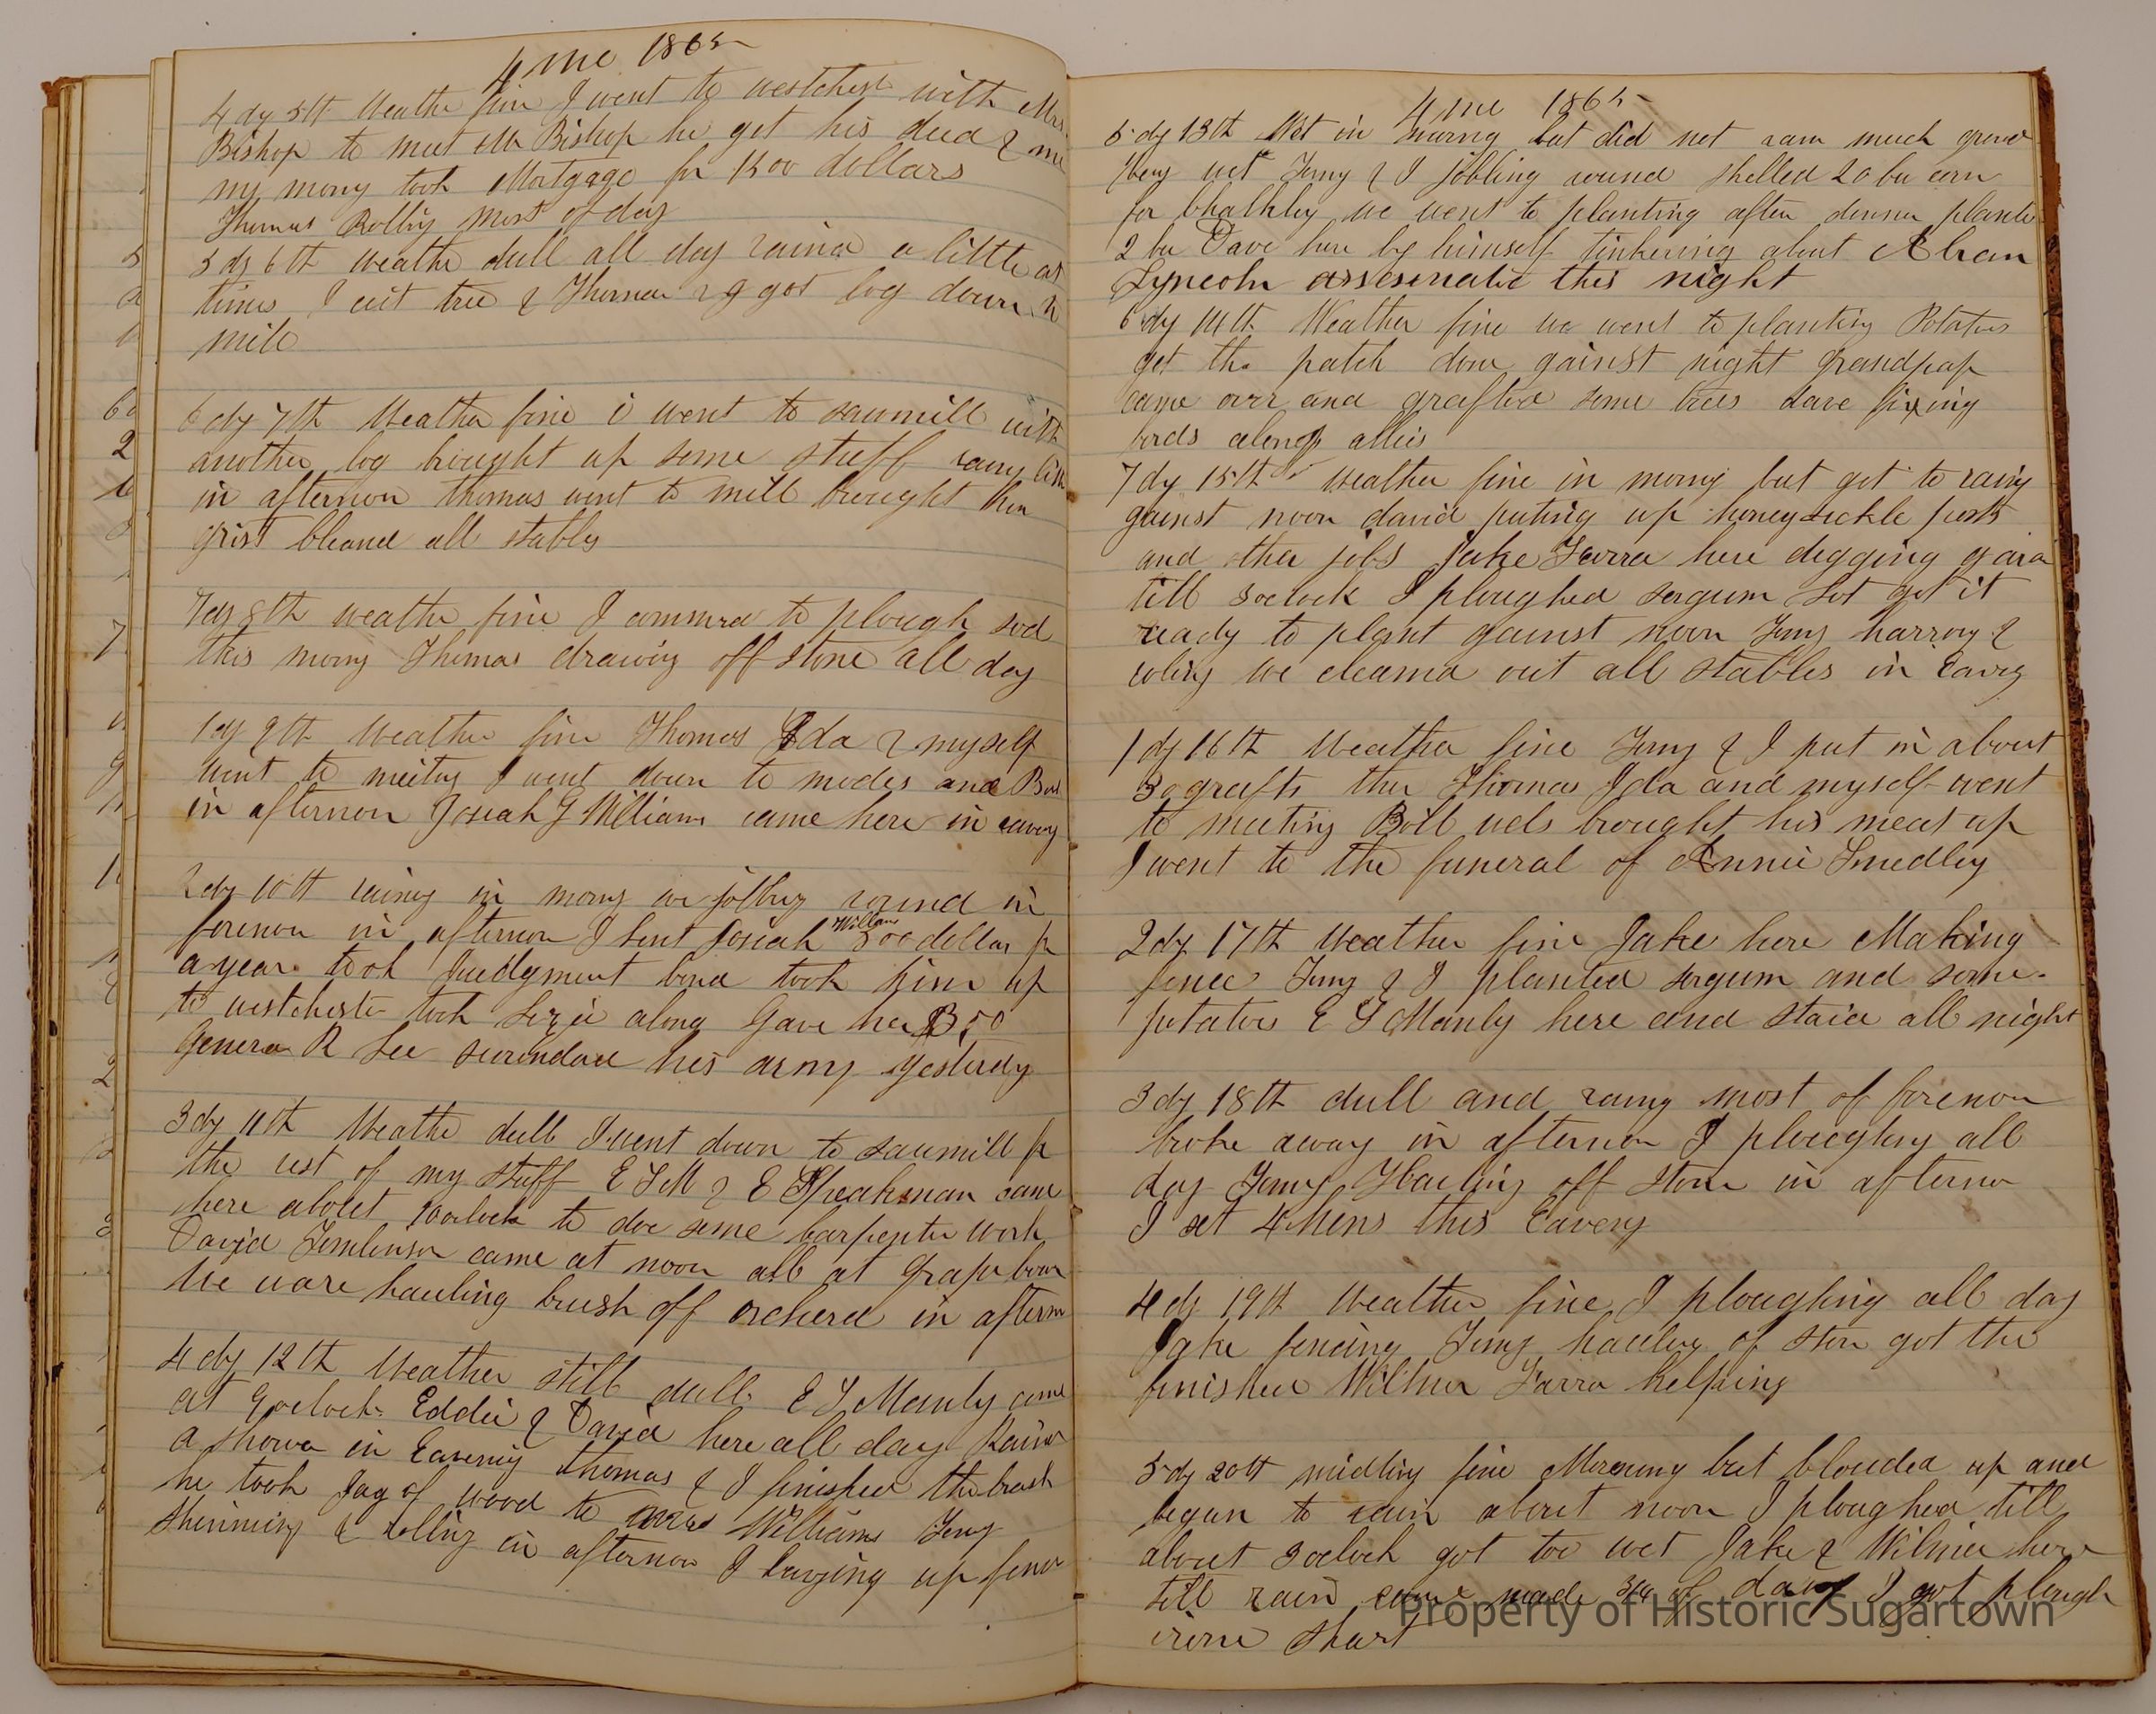 4 mo 1865
4 dy 5th Weathe fine I went to westchest with Mrs
Bishop to meet Mr Bishop he got his deed & me
my mony took Mortgage for 1500 dollars
Thomas Rolling most of day
5 dy 6th weathe dull all day raind a little at
times I cut tree & Thomas & I got log down to
mill
6 dy 7th Weathe fine i went to sawmill with
another log brought up some stuff
in afternoon thomas went to mill brought
grist Cleand all stables
7 dy 8th weathe fine I commced to plough sod
this morng Thomas drawing off stone all day
1 dy 9th Weathe fine Thomas Ida & myself
went to meeting I went down to modes and
in afternon Josiah J Williams came here in eavng
2 dy 10th rainy in morng we jobbing round in
forenon in afternon I lent Josiah Willams 500 dollas for
a year took Juedgment bond took him up
to westcheste took Lizzie along Gave her
Genera R Lee surendard his army yesterdy
3 dy 11th Weathe dull I went down to sawmill for
the rest of my stuff E L M & E Speakman came
here about 10 oclock to doe some Carpente work
David Tomlinson came at noon all at Grape
We ware hauling brush off orcherd in aftern
4 dy 12th Weather still dull E L Manly came
at 9 oclock Eddie & David here all day Raind
a showr in Eavening thomas & I finished the brush
he took Jag of wood to Williams Jemy
& rolling in afternon I laying up fence
4 mo 1865
5 dy 13th Wet in morng but did not rain much grond
Very wet Jemy & I jobbing round shelled 20 bu corn
for Chalkley we went to planting after dinner plante
2 bu Dave here by himself tinkering about Abram
Lyncoln assesenated this night
6 dy 14th Weather fine we went to planting Potatos
get the patch done gainst night grandpap
came over and grafted some trees dave fixing
along
7 dy 15th Weather fine in morng but got to rainy
gainst noon david puting up honeysickle posts
and other jobs Jake Farra here digging
till 3 oclock I ploughed sorgum Lot got it
ready to plant gainst noon Jemy harrowing &
roling we cleand out all stables in Eavng
1 dy 16th Weather fine Jemy & I put in about
30 grafts then Thomas Ida and myself went
to meeting Bill brought his meat up
I went to the funeral of Annie Smedley
2 dy 17th Weather fine Jake here Making
fence Jemy & I planted sorgum and some
potatoes E L Manly here and staid all night
3 dy 18th dull and rainy most of forenon
broke away in afternon I ploughing all
day Jemy Hauling off stone in afterno
I set 4 Hens this Eavering
4 dy 19th Weather fine I ploughing all day
Jake fencing Jemy hauling of ston got the
finished Wilmer Farra helping
5 dy 20th midling fine Morning but Clouded up and
began to rain about noon I ploughed till
about 3 oclock got too wet Jake & Wilmer here
till rain came made 3/4 of day I got plough
irone sharp
Property of Historic Sugartown